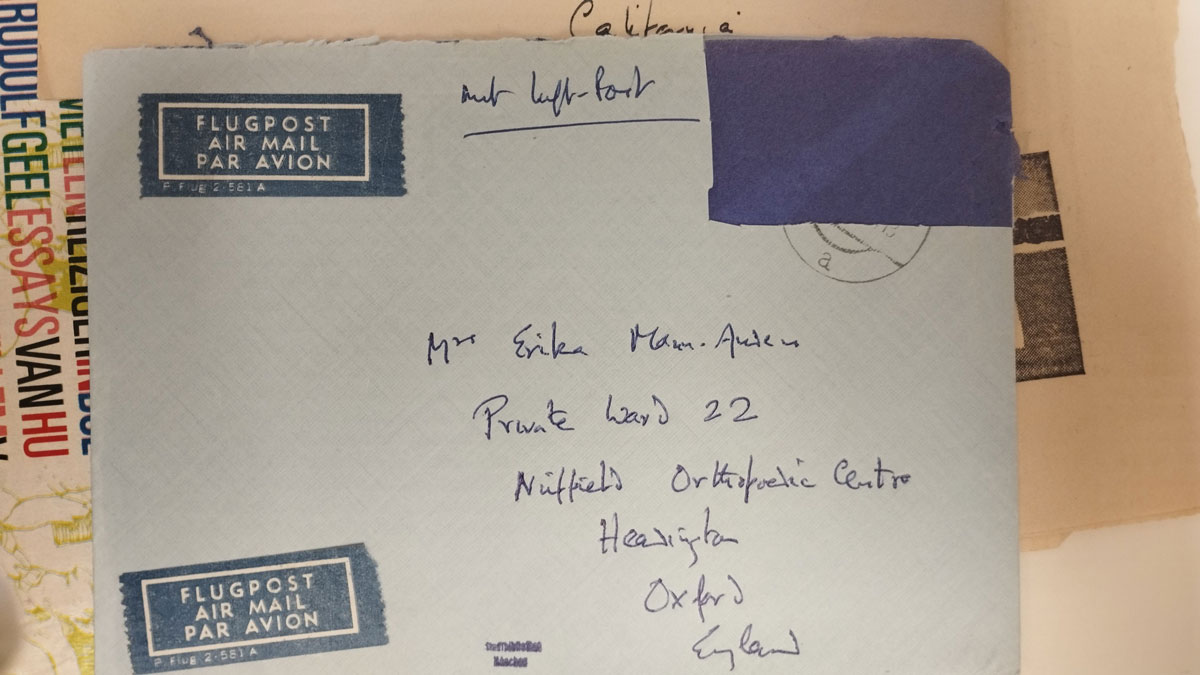 California
mit Luft-Post
FLUGPOST
AIR MAIL
PAR AVION
P. Flug 2-581 A
a
Mrs Erika Mann-Auden
Private Ward 22
Nuffield Orthopaedic Centre
Headington
Oxford
England
FLUGPOST
AIR MAIL
PAR AVION
P. Flug 2-581 A
Stadtbibliothek
München
RUDOLF GEEL ESSAYS VAN HU